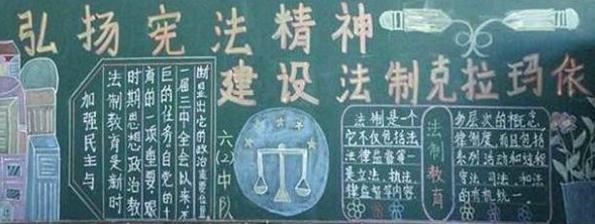 弘扬宪法精神
建设法制克拉玛依
加强民主与
法制教育是新时
期思想政治教
育的一项重要、艰
巨的任务自党的十
一届三中全会以来
六(2)中队
法制是一个
它不仅包括法
法律监督等一
是立法、执法、
律监督等内容
法制教育
多层次的概念,
律制度,而且包括
系列活动和过程
守法、司法、和法
的有机统一.